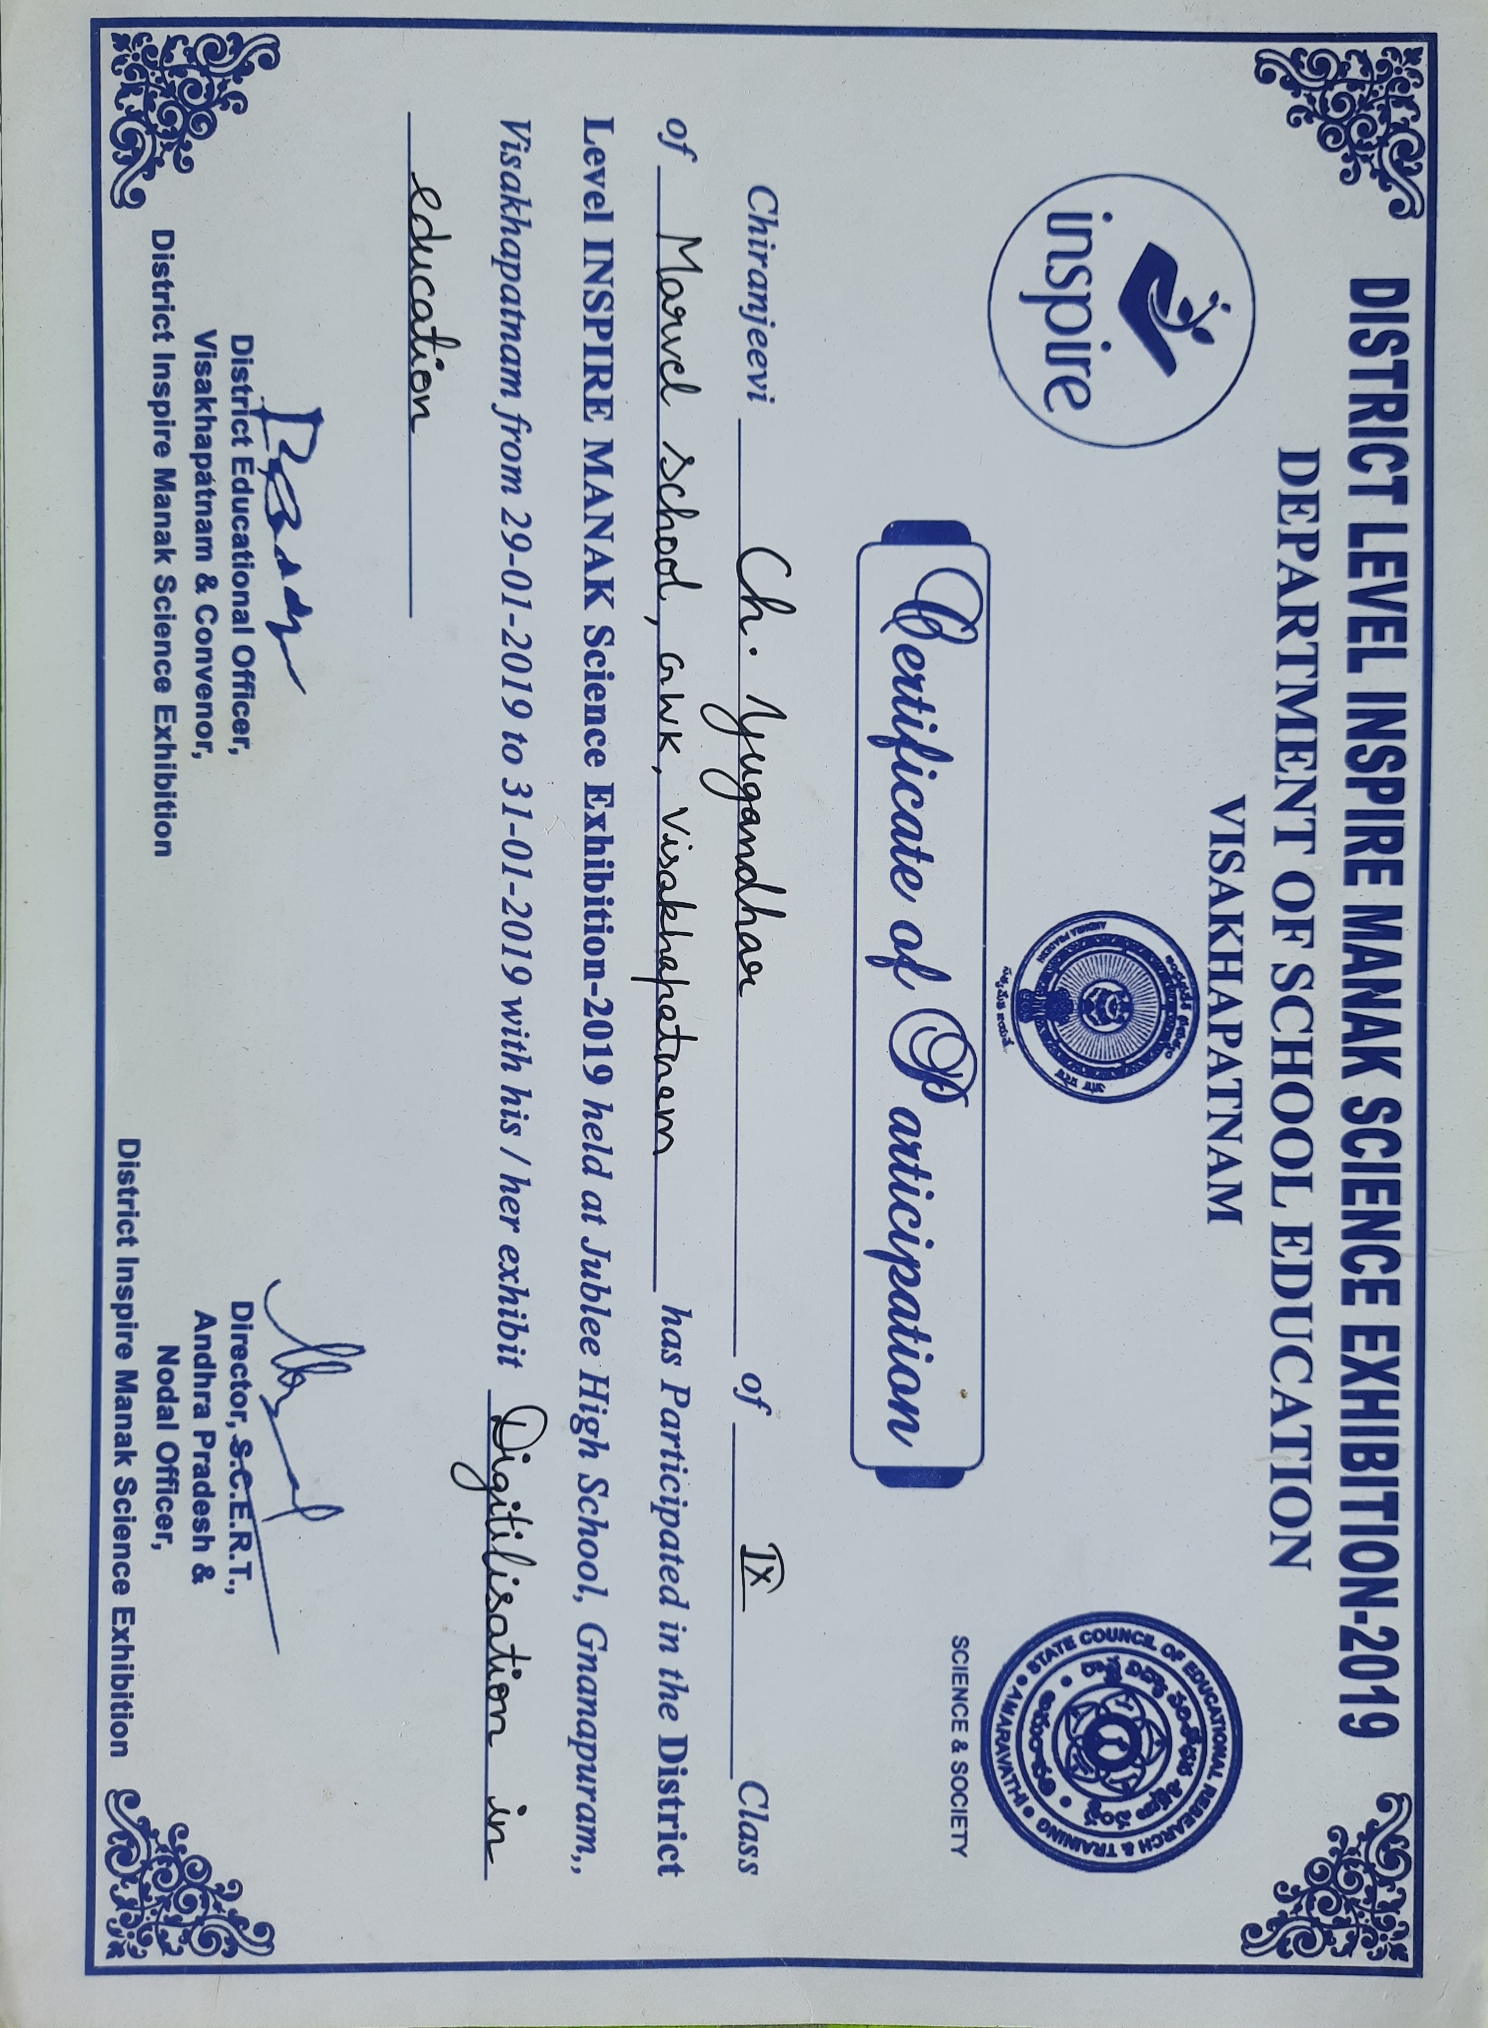 DISTRICT LEVEL INSPIRE MANAK SCIENCE EXHIBITION-2019
DEPARTMENT OF SCHOOL EDUCATION
VISAKHAPATNAM
inspire
ఆంధ్రప్రదేశ్ ప్రభుత్వం
ANDHRA PRADESH
సత్యమేవ జయతే
STATE COUNCIL OF EDUCATIONAL RESEARCH & TRAINING
AMARAVATHI
అమరావతి
SCIENCE & SOCIETY
Certificate of Participation
Chiranjeevi Ch. Yugandhar of IX Class
of Marvel School, GWK, Visakhapatnam has Participated in the District
Level INSPIRE MANAK Science Exhibition-2019 held at Jublee High School, Gnanapuram,,
Visakhapatnam from 29-01-2019 to 31-01-2019 with his / her exhibit Digitilisation in
education
District Educational Officer,
Visakhapatnam & Convenor,
District Inspire Manak Science Exhibition
Director, S.C.E.R.T.,
Andhra Pradesh &
Nodal Officer,
District Inspire Manak Science Exhibition